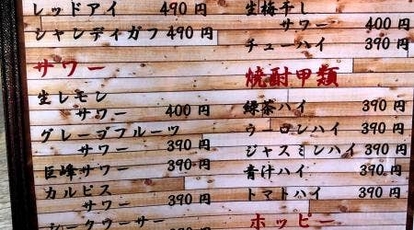 レッドアイ 490円
シャンディガフ 490円
サワー
生レモン
サワー 400円
グレープフルーツ
サワー 390円
巨峰サワー 390円
カルピス
サワー 390円
生梅干し
サワー 400円
チューハイ 390円
焼酎甲類
緑茶ハイ 390円
ウーロンハイ 390円
ジャスミンハイ 390円
青汁ハイ 390円
トマトハイ 390円
ホッピー